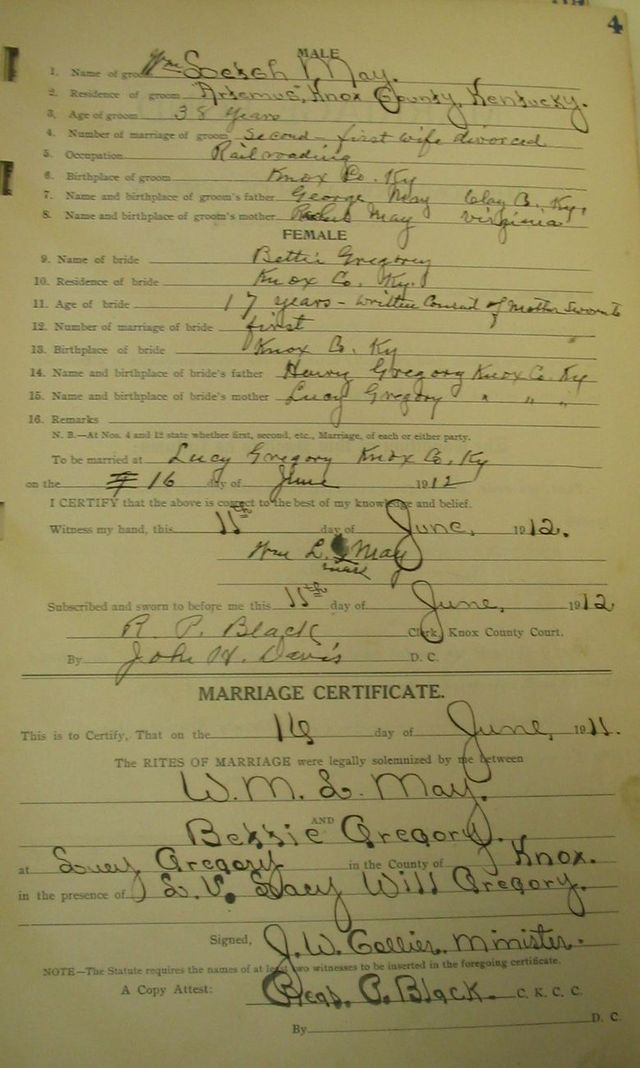 4
MALE
1. Name of groom Wm May.
2. Residence of groom Artemus, Knox County, Kentucky.
3. Age of groom 38 years
4. Number of marriage of groom Second - first wife divorced
5. Occupation Railroading
6. Birthplace of groom Knox Co. Ky
7. Name and birthplace of groom's father George May Clay Co. Ky,
8. Name and birthplace of groom's mother May Virginia
FEMALE
9. Name of bride Bettie Gregory
10. Residence of bride Knox Co. Ky.
11. Age of bride 17 years - written of Mother Sworn to
12. Number of marriage of bride first
13. Birthplace of bride Knox Co. Ky
14. Name and birthplace of bride's father Henry Gregory Knox Co. Ky
15. Name and birthplace of bride's mother Lucy Gregory " " "
16. Remarks
N. B.—At Nos. 4 and 12 state whether first, second, etc., Marriage, of each or either party.
To be married at Lucy Gregory Knox Co, Ky
on the 16 day of June 1912
I CERTIFY that the above is correct to the best of my knowledge and belief.
Witness my hand, this 11th day of June, 1912.
Wm L. May
mark
Subscribed and sworn to before me this 11th day of June, 1912
R. P. Black Clerk Knox County Court.
By John H. Davis D. C.
MARRIAGE CERTIFICATE.
This is to Certify, That on the 16 day of June, 1911.
The RITES OF MARRIAGE were legally solemnized by me between
W. M. L. May.
AND
Bessie Gregory.
at Lucy Gregory in the County of Knox.
in the presence of Will Gregory.
Signed, J. W. Collier. Minister.
NOTE—The Statute requires the names of at least two witnesses to be inserted in the foregoing certificate.
A Copy Attest: P. Black. C. K. C. C.
By D. C.